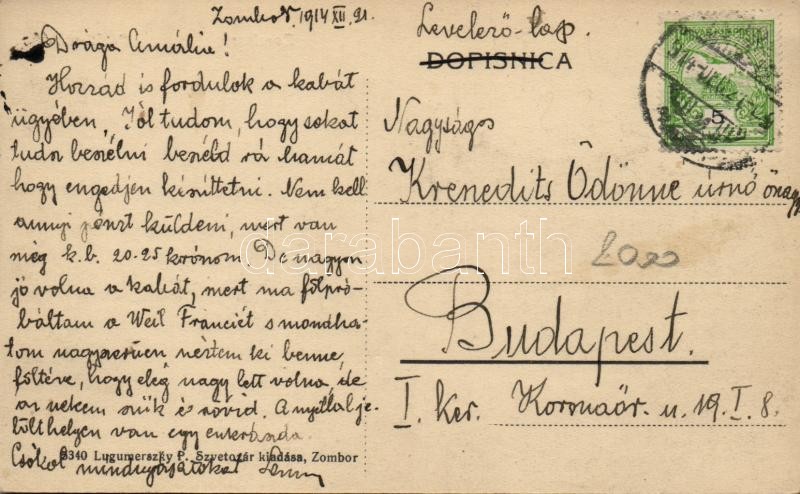 Zombor, 1914 XII. 21.
Drága Amália!
Hozzád is fordulok a kabát
ügyében, Jól tudom, hogy sokat
tudsz beszélni beszéld rá mamát
hogy engedjen készíttetni. Nem kell
annyi pénzt küldeni, mert van
még k.b. 20-25 koronám. De nagyon
jó volna a kabát, mert ma fölpró-
báltam a Weil Franciét s mondha-
tom nagyszerűen néztem ki benne,
föltéve, hogy elég nagy lett volna, de
az nekem szűk és rövid. A nyíllal je-
lölt helyen van egy cukrászda.
Csókol mindnyájatokat
8340 Lugumerszky P. Szvetozár kiadása, Zombor
Levelező-lap.
DOPISNICA
Nagyságos
Krenedits Ödönne úrnő őnagys
2000
Budapest.
I. ker. Koronaőr. u. 19. I. 8.
5
darabanth.com